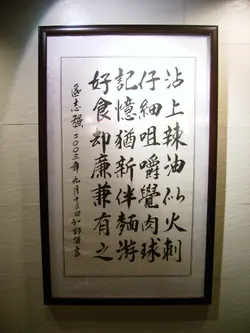 沾上辣油似火刺
仔細咀嚼覺肉球
記憶猶新伴麵游
好食却廉兼有之
區志强二〇〇三年九月十三日